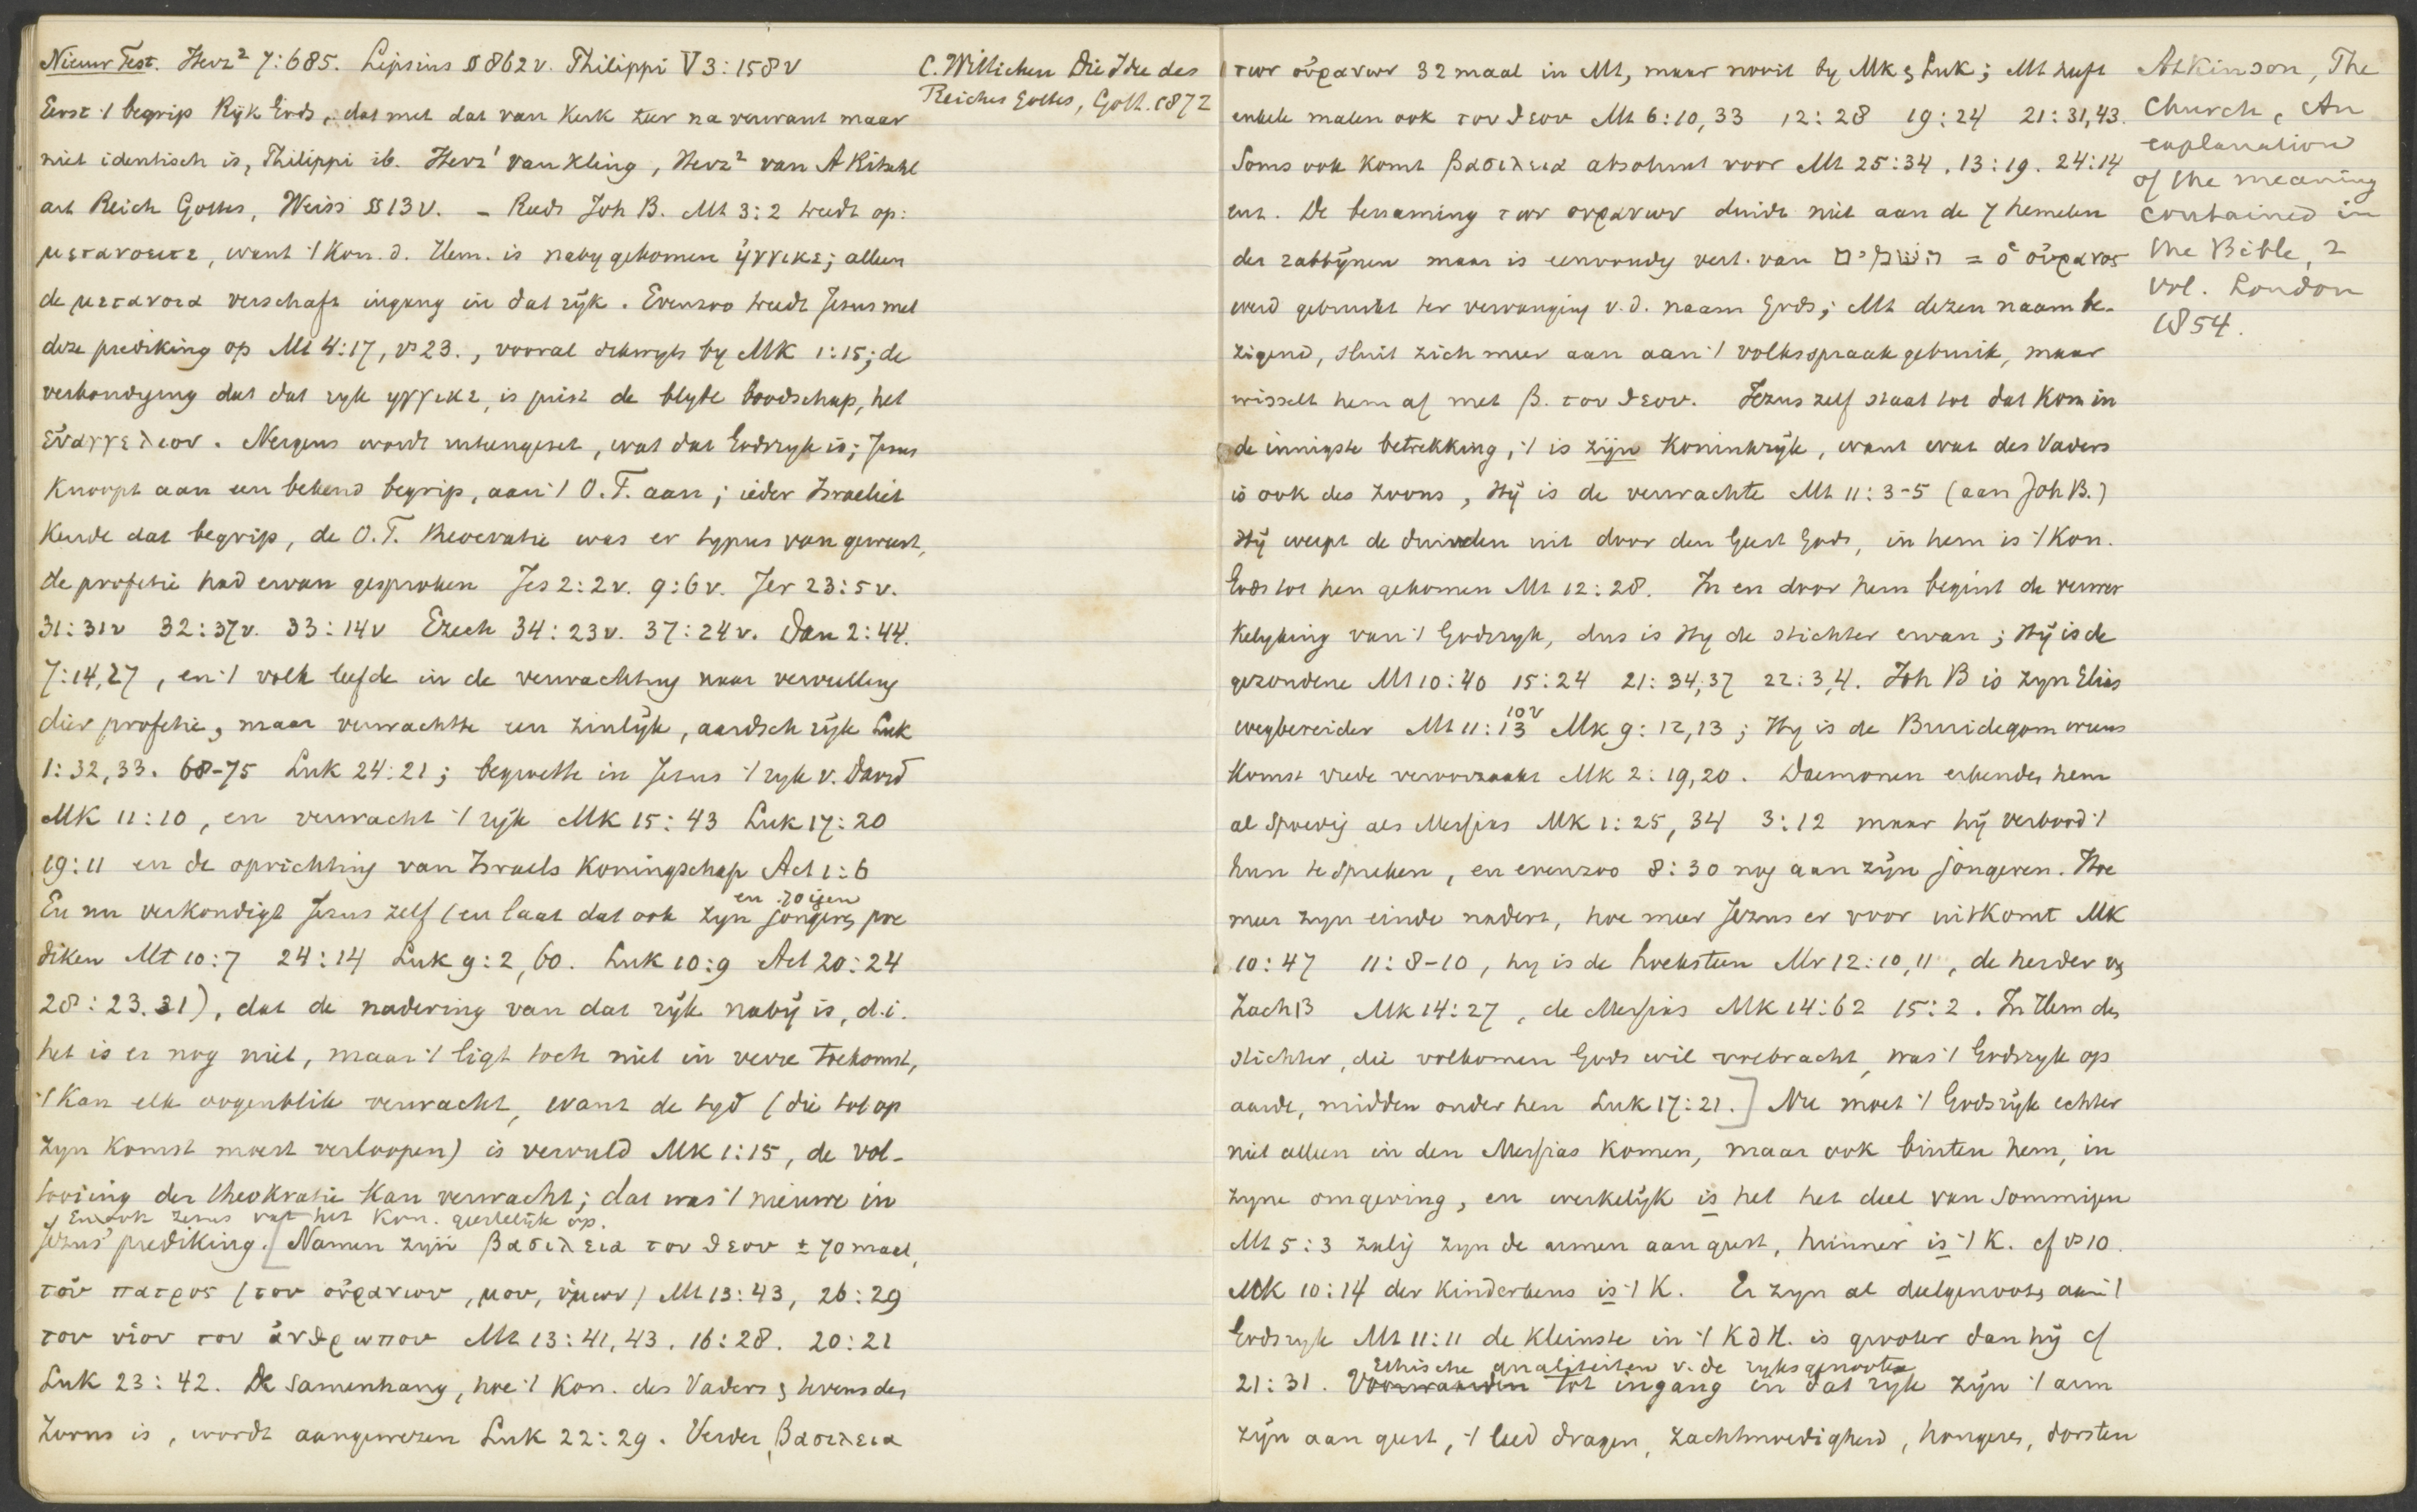 Nieuw Test. Herz² 7:685. Lipsius § 862 v. Philippi V 3:158 v
Eerst 't begrip Rijk Gods, dat met dat van Kerk zeer na verwant maar
niet identisch is, Philippi ib. Herz¹ van Kling, Herz² van A Ritschl
art Reich Gottes, Weiss §§ 13 v. – Reeds Joh B. Mt 3:2 treedt op:
μετανοειτε, want 't Kon. d. Hem. is naby gekomen ἠγγικε; alleen
de μετανοια verschaft ingang in dat rijk. Evenzoo treedt Jesus met
deze prediking op Mt 4:17, vs 23., vooral by MK 1:15; de
verkondiging dat dat ryk ηγγικε, is juist de blyde boodschap, het
εὐαγγελιον. Nergens wordt uiteengezet, wat dat Godsryk is; Jesus
knoopt aan een bekend begrip, aan 't O.T. aan; ieder Israeliet
kende dat begrip, de O.T. theocratie was er typus van geweest,
de profetie had ervan gesproken Jes 2:2 v. 9:6 v. Jer 23:5 v.
31:31 v 32:37 v. 33:14 v Ezech 34:23 v. 37:24 v. Dan 2:44.
7:14,27, en 't volk leefde in de verwachting naar vervulling
dier profetie, maar verwachtte een zinlijk, aardsch rijk Luk
1:32,33. 68-75 Luk 24:21; begroette in Jesus 't ryk v. David
MK 11:10, en verwacht 't rijk MK 15:43 Luk 17:20
19:11 en de oprichting van Israels Koningschap Act 1:6
En nu verkondigt Jezus zelf (en laat dat ook zyn jongers en 70igen pre
diken Mt 10:7 24:14 Luk 9:2,60. Luk 10:9 Act 20:24
28:23.31), dat de nadering van dat rijk naby is, d.i.
het is er nog niet, maar 't ligt toch niet in verre toekomst,
't Kan elk oogenblik verwacht, want de tyd (die tot op
zyn komst moest verloopen) is vervuld MK 1:15, de vol-
tooiing der theokratie kan verwacht; dat was 't nieuwe in
En ook Jezus vat het Kon. geestelijk op.
Jezus' prediking. [Namen zijn βασιλεια του θεου ± 70 maal,
του πατρος (των οὐρανων, μου, ὑμων) Mt 13:43, 26:29
του υἱου του ἀνθρωπου Mt 13:41,43. 16:28. 20:21
Luk 23:42. De samenhang, hoe 't Kon. des Vaders tevens des
Zoons is, wordt aangewezen Luk 22:29. Verder βασιλεια
C. Wittichen Die Idee des
Reiches Gottes, Gött. 1872
των οὐρανων 32 maal in Mt, maar nooit by Mk & Luk; Mt heeft
enkele malen ook του θεου Mt 6:10,33 12:28 19:24 21:31,43.
Soms ook komt βασιλεια absoluut voor Mt 25:34. 13:19. 24:14
enz. De benaming των ουρανων duidt niet aan de 7 hemelen
der rabbijnen maar is eenvoudig vert. van השמים = ὁ οὐρανος
werd gebruikt ter vervanging v.d. naam Gods; Mt dezen naam be-
zigend, sluit zich meer aan aan 't volksspraakgebruik, maar
wisselt hem af met β. του θεου. Jezus zelf staat tot dat Kon in
de innigste betrekking, 't is zijn Koninkrijk, want wat des Vaders
is ook des Zoons, Hij is de verwachte Mt 11:3-5 (aan Joh B.)
Hij werpt de duivelen uit door den Geest Gods, in hem is 't Kon.
Gods tot hen gekomen Mt 12:28. In en door hem begint de verwer
kelyking van 't Godsryk, dus is Hy de stichter ervan; Hij is de
gezondene Mt 10:40 15:24 21:34,37 22:3,4. Joh B is zyn Elias
wegbereider Mt 11:10v 13 Mk 9:12,13; Hy is de Bruidegom wiens
Komst vrede veroorzaakt MK 2:19,20. Daemonen erkenden hem
al spoedig als Messias MK 1:25,34 3:12 maar hij verbood 't
hun te spreken, en evenzoo 8:30 nog aan zijn jongeren. Hoe
meer zyn einde nadert, hoe meer Jezus er voor uitkomt MK
10:47 11:8-10, hy is de hoeksteen Mr 12:10,11, de herder uit
Zach 13 MK 14:27, de Messias MK 14:62 15:2. In Hem den
stichter, die volkomen Gods wil volbracht, was 't Godsryk op
aarde, midden onder hen Luk 17:21.] Nu moet 't Godsrijk echter
niet alleen in den Messias komen, maar ook buiten hem, in
zyne omgeving, en werkelijk is het het deel van Sommigen
Mt 5:3 zalig zyn de armen aan geest, hunner is 't K. cf vs 10.
MK 10:14 der kinderkens is 't K. Er zyn al deelgenooten aan 't
Godsryk Mt 11:11 de kleinste in 't K d H. is grooter dan hij cf
Ethische qualiteiten v. de ryksgenooten
21:31. Voorwaarden tot ingang in dat ryk zijn 't arm
zijn aan geest, 't leed dragen, zachtmoedigheid, hongeren, dorsten
Atkinson, The
Church, An
explanation
of the meaning
contained in
the Bible, 2
vol. London
1854.